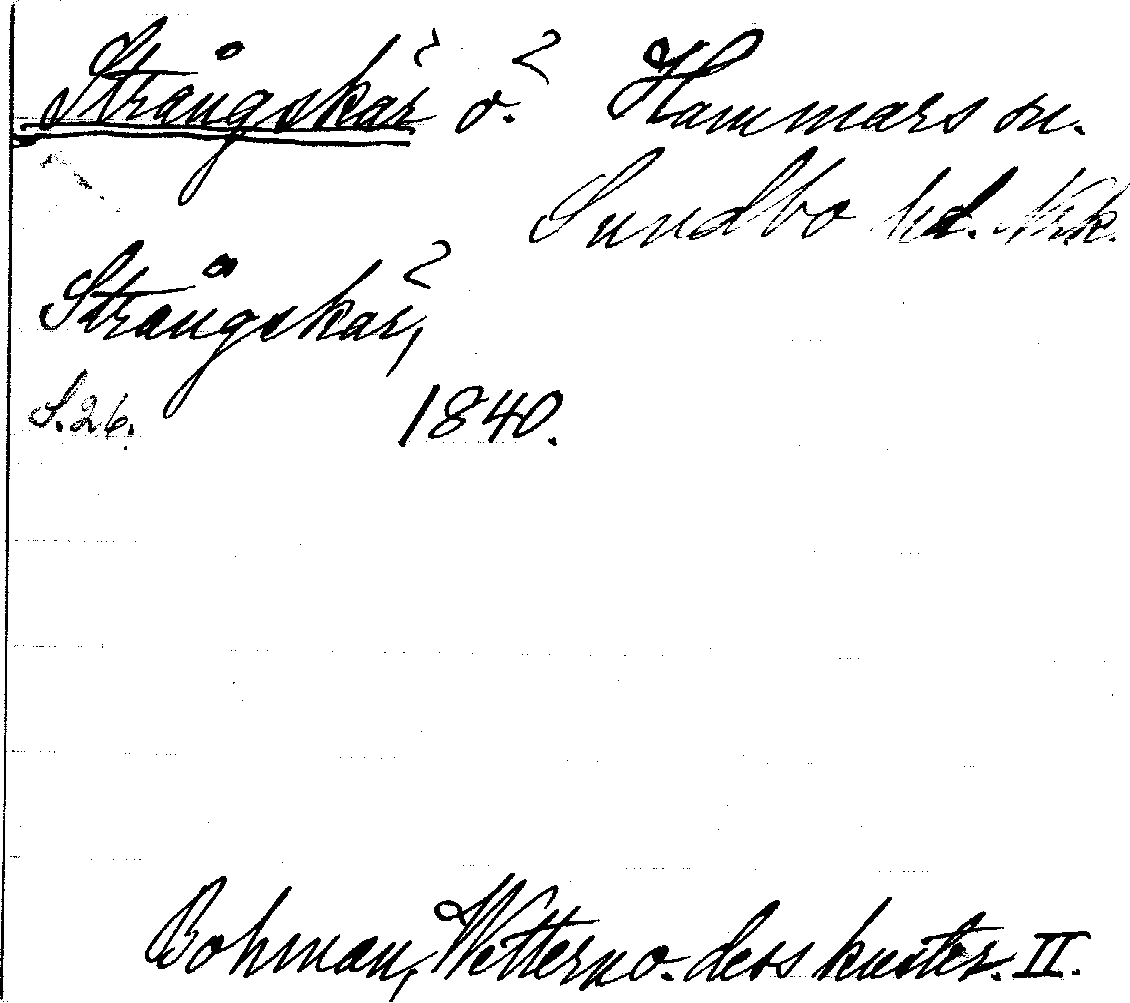 Strångskär ö. Hammars sn.
Sundbo hd. Nrk.
Strångskär,
S. 26. 1840.
Bohman, Wettern o. dess kuster. II.